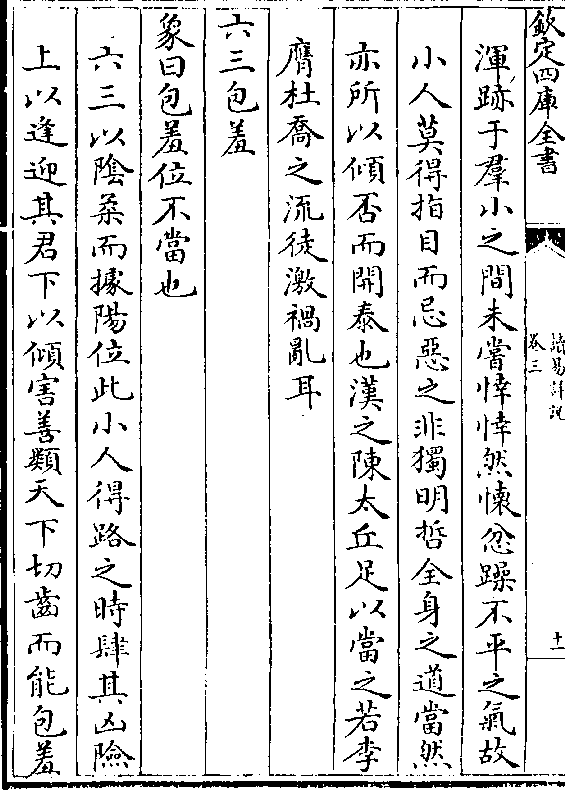 欽定四庫全書
讀易詳說
卷三
十一
渾跡于羣小之間未嘗悻悻然懷忿躁不平之氣故
小人莫得指目而忌惡之非獨明哲全身之道當然
亦所以傾否而開泰也漢之陳太丘足以當之若李
膺杜喬之流徒激禍亂耳
六三包羞
象曰包羞位不當也
六三以陰柔而據陽位此小人得路之時肆其凶險
上以逢迎其君下以傾害善類天下切齒而能包羞